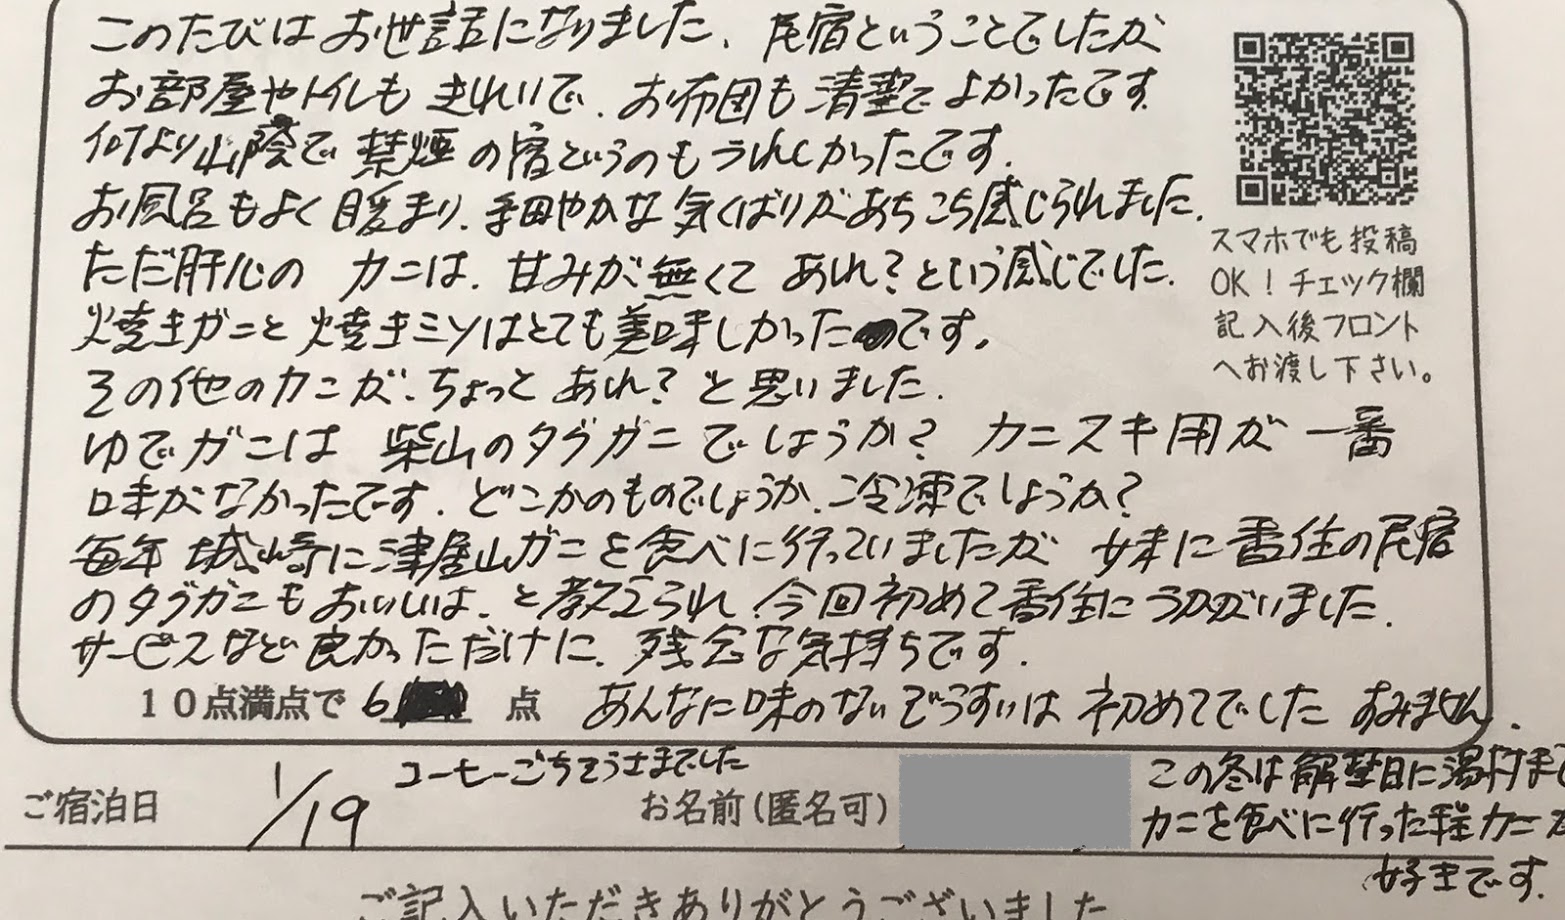 このたびはお世話になりました、民宿ということでしたが
お部屋やトイレもきれいで、お布団も清潔でよかったです
何より山陰で禁煙の宿というのもうれしかったです.
お風呂もよく暖まり、手田やかな気くばりがあちこち感じられました.
ただ肝心の カニは、甘みが無くて あれ?という感じでした.
焼きガニと焼きミソはとても美味しかったです。
その他のカニが、ちょっと あれ?と思いました.
ゆでガニは 柴山のタグガニでしょうか? カニスキ用が一番
味がなかったです. どこかのものでしょうか、冷凍でしょうか?
毎年 城崎に津居山ガニを食べに行っていましたが 妹に香住の民宿
のタグガニもおいしいは、と教えられ、今回初めて香住にうかがいました.
サービスなど良かっただけに、残念な気持ちです.
10点満点で 6 点 あんなに味のないぞうすいは 初めてでした すみません.
スマホでも投稿
OK!チェック欄
記入後フロント
へお渡し下さい。
コーヒーごちそうさまでした
ご宿泊日 1/19 お名前(匿名可)
この冬は解禁日に湯村まで
カニを食べに行った程カニ
好きです.
ご記入いただきありがとうございました